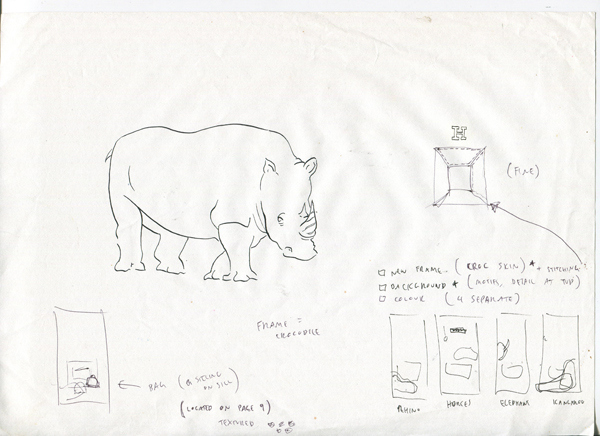 H
(FINE)
NEW FRAME. (CROC SKIN) * + STITCHING
BACKGROUND * (MOTIFS, DETAIL AT TOP)
COLOUR (4 SEPARATE)
FRAME =
CROCODILE
BAG (
ON SILL)
(LOCATED ON PAGE 9)
TEXTURED
RHINO HORSES ELEPHANT KANGAROO